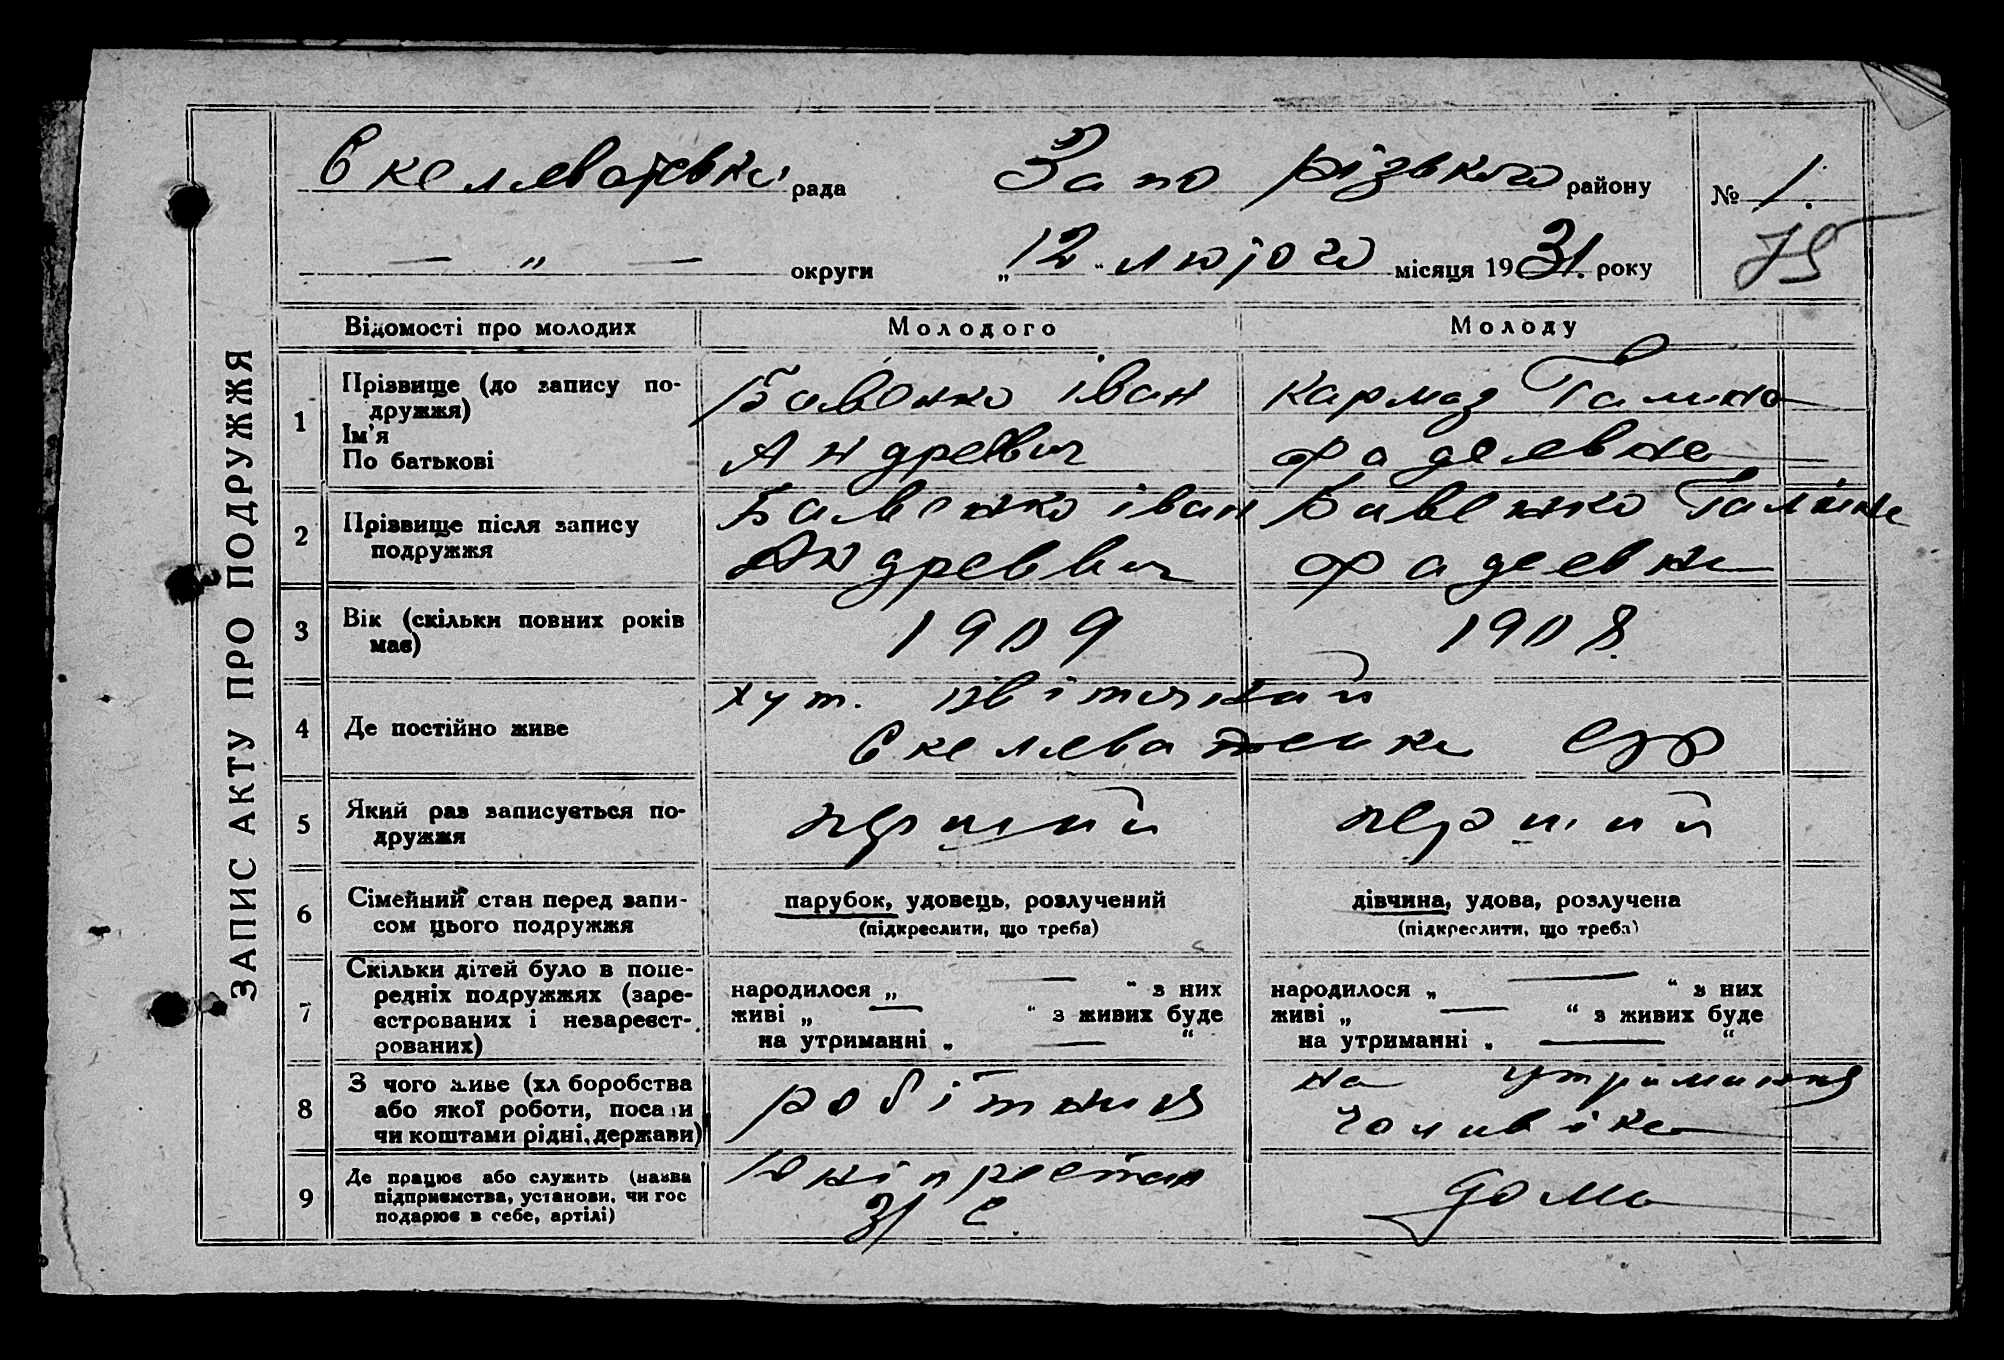 ЗАПИС АКТУ ПРО ПОДРУЖЖЯ
Скелеватська рада Запорізького району № 1.
— „ — округи „12“ лютого місяця 1931. року 75
Відомості про молодих Молодого Молоду
1 Прізвище (до запису по-
дружжя)
Ім'я
По батькові
Бабенко Іван
Андревич
Кармаз Галина
Фадеевна
2 Прізвище після запису
подружжя
Бабенко Іван
Андреввич
Бабенко Галина
Фадеевна
3 Вік (скільки повних років
має)
1909 1908
4 Де постійно живе
хут. Квітчкай
Скелеватськи с/р
5 Який раз записується по-
дружжя
перший перший
6 Сімейний стан перед запи-
сом цього подружжя
парубок, удовець, розлучений
(підкреслити, що треба)
дівчина, удова, розлучена
(підкреслити, що треба)
7 Скільки дітей було в попе-
редніх подружжях (заре-
єстрованих і незареєст-
рованих)
народилося „ — “ з них
живі „ — “ з живих буде
на утриманні „ — “
народилося „ — “ з них
живі „ — “ з живих буде
на утриманні „ — “
8 З чого живе (хліборобства
або якої роботи, посади
чи коштами рідні, держави)
робітник
на утримання
чоловіка
9 Де працює або служить (назва
підприємства, установи, чи гос
подарює в себе, артілі)
дома